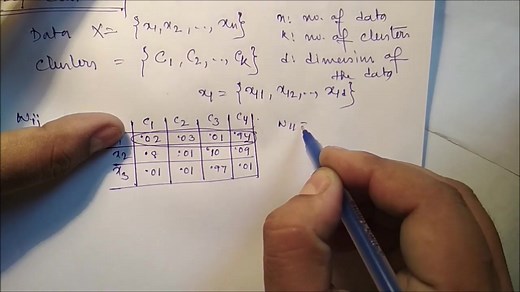 Data X = {x1, x2, .., xn}
n: no. of data
k: no. of clusters
Clusters = {C1, C2, .., Ck}
d: dimension of
the data
x1 = {x11, x12, .., x1d}
wij
C1 C2 C3 C4
.02 .03 .01 .94
x2 .8 .01 .10 .09
x3 .01 .01 .97 .01
w11 =